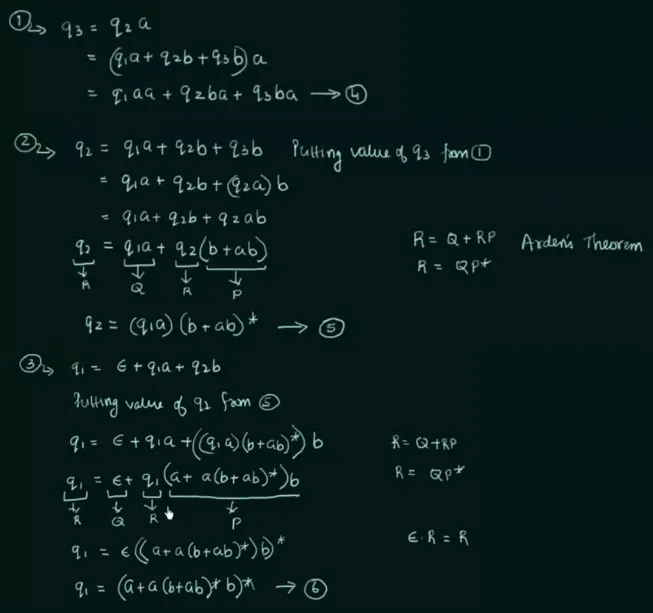 ① ↳ q₃ = q₂a
= (q₁a + q₂b + q₃b)a
= q₁aa + q₂ba + q₃ba → ④
② ↳ q₂ = q₁a + q₂b + q₃b Putting value of q₃ from ①
= q₁a + q₂b + (q₂a)b
= q₁a + q₂b + q₂ab
q₂ = q₁a + q₂(b+ab) R = Q + RP Arden's Theorem
R Q R P R = QP*
q₂ = (q₁a)(b+ab)* → ⑤
③ ↳ q₁ = ϵ + q₁a + q₂b
Putting value of q₂ from ⑤
q₁ = ϵ + q₁a + ((q₁a)(b+ab)*)b R = Q+RP
q₁ = ϵ + q₁(a + a(b+ab)*)b R = QP*
R Q R P
q₁ = ϵ((a+a(b+ab)*)b)* ϵ·R = R
q₁ = (a+a(b+ab)*b)* → ⑥